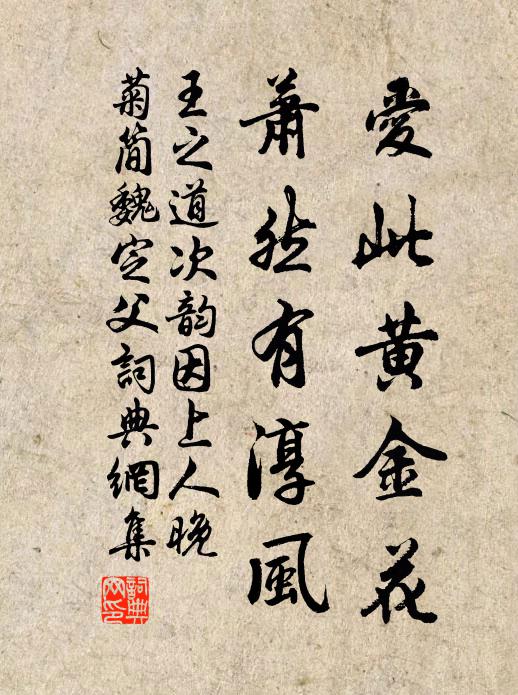 愛此黄金花
蕭然有淳風
王之道次韵因上人晚
菊簡魏定父詞典網集
詞典
网印